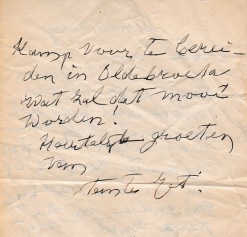 Kamp voor te berei-
den in Oldebroek a
wat zal dat mooi
Worden!
Hartelijke groeten
van
tante Jet.